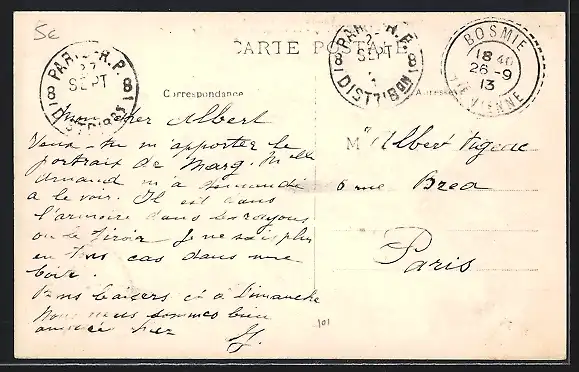 5c
PARIS R.P.
8 27 8
SEPT
DISTRIBON
CARTE POSTALE
PARIS R.P.
8 27 8
SEPT
DISTRIBON
BOSMIE
18 40
26-9
13
HTE VIENNE
Correspondance
Adresse
Mon cher Albert
Veux-tu m'apporter le
portrait de Marg. Mlle
Armand m'a demandé
à le voir. Il est dans
l'armoire dans les rayons
ou le tiroir je ne sais plus
en tous cas dans une
boite.
Bons baisers et à Dimanche
Nous nous sommes bien
hier
Mr Albert
6 rue Brea
Paris
101